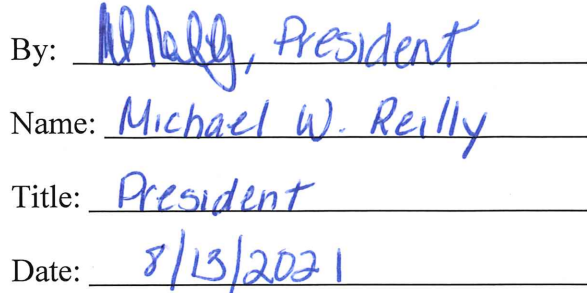 By: , President
Name: Michael W. Reilly
Title: President
Date: 8/13/2021